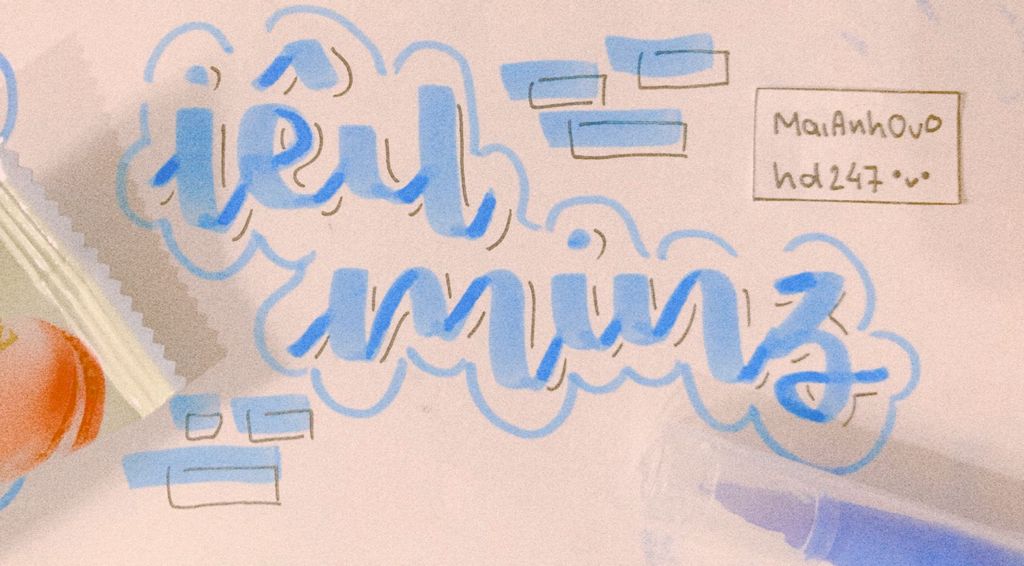 iêu
minz
MaiAnhOvO
hd247•v•